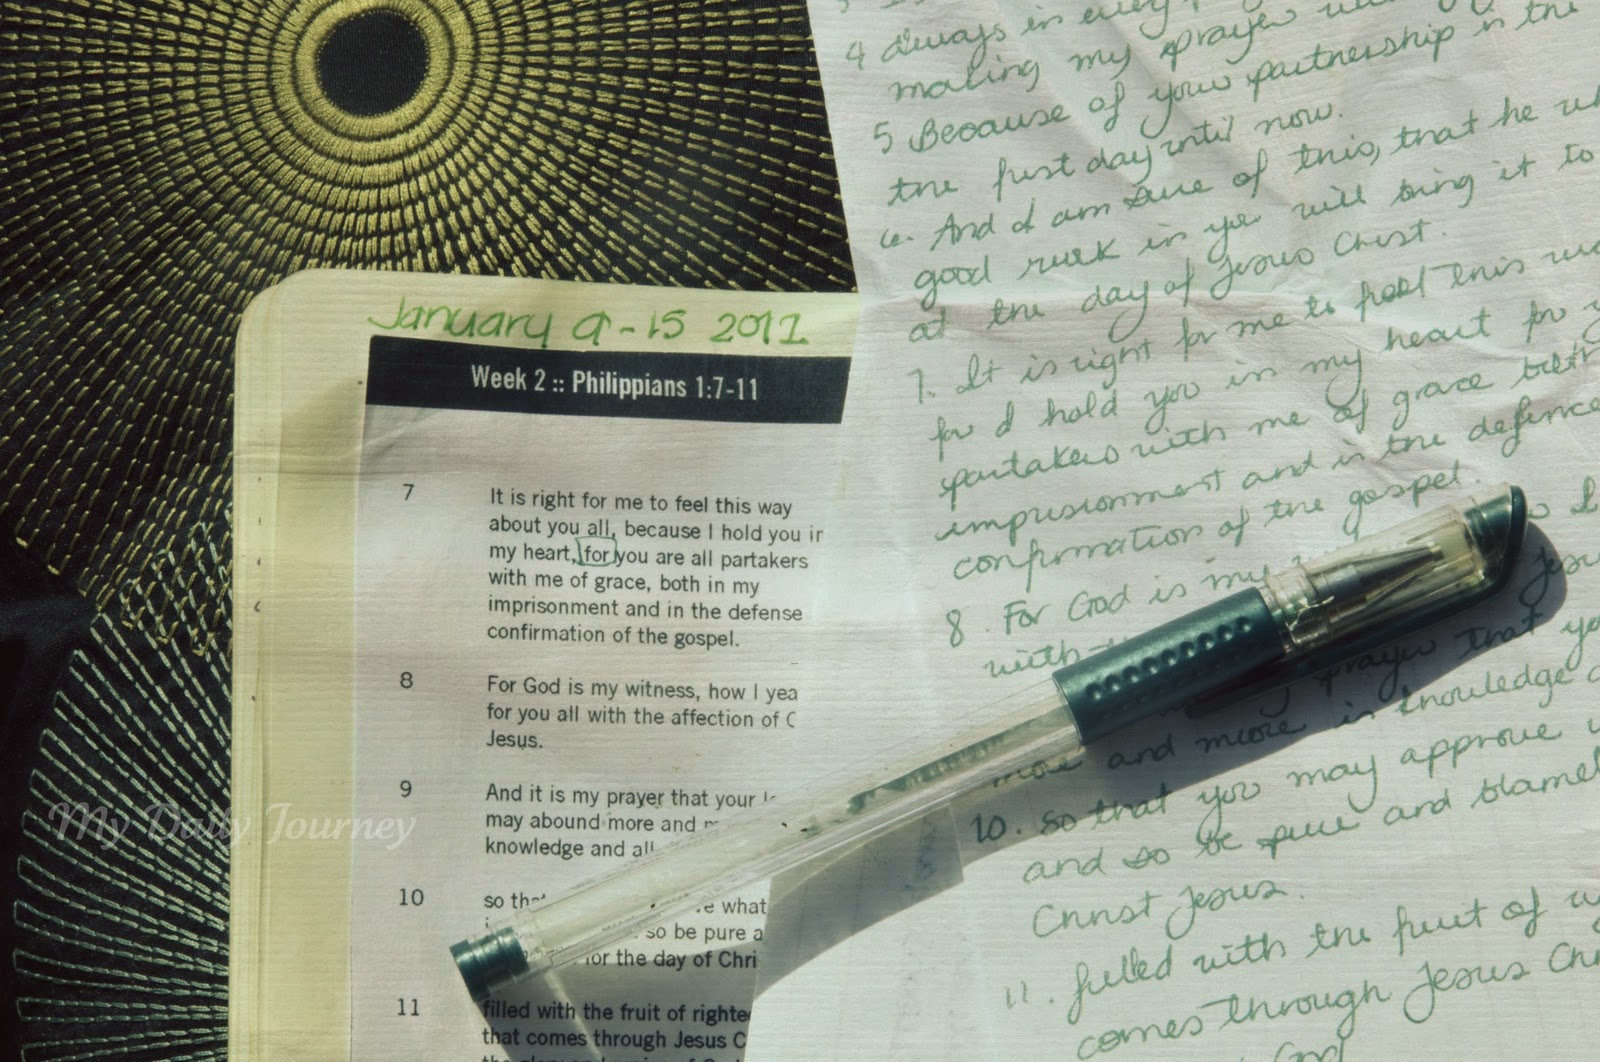 January 9-15 2011
Week 2 :: Philippians 1:7-11
7 It is right for me to feel this way
about you all, because I hold you in
my heart, for you are all partakers
with me of grace, both in my
imprisonment and in the defense
confirmation of the gospel.
8 For God is my witness, how I yea
for you all with the affection of C
Jesus.
9 And it is my prayer that your
may abound more and
knowledge and all
10 so tha
e what
so be pure a
for the day of Chri
11 filled with the fruit of righte
that comes through Jesus C
My Daily Journey
4 always in every
making my prayer
5 Because of your partnership in the
the first day until now.
6. And I am sure of this, that he
good work in you will bring it to
at the day of Jesus Christ.
7. It is right for me to feel this
for I hold you in my heart for
partakers with me of grace both
imprisonment and in the defence
confirmation of the gospel.
8. For God is my
with
prayer that yo
more and more in knowledge
10. so that you may approve
and so be pure and blamel
Christ Jesus.
11. filled with the fruit of
comes through Jesus Chr
God